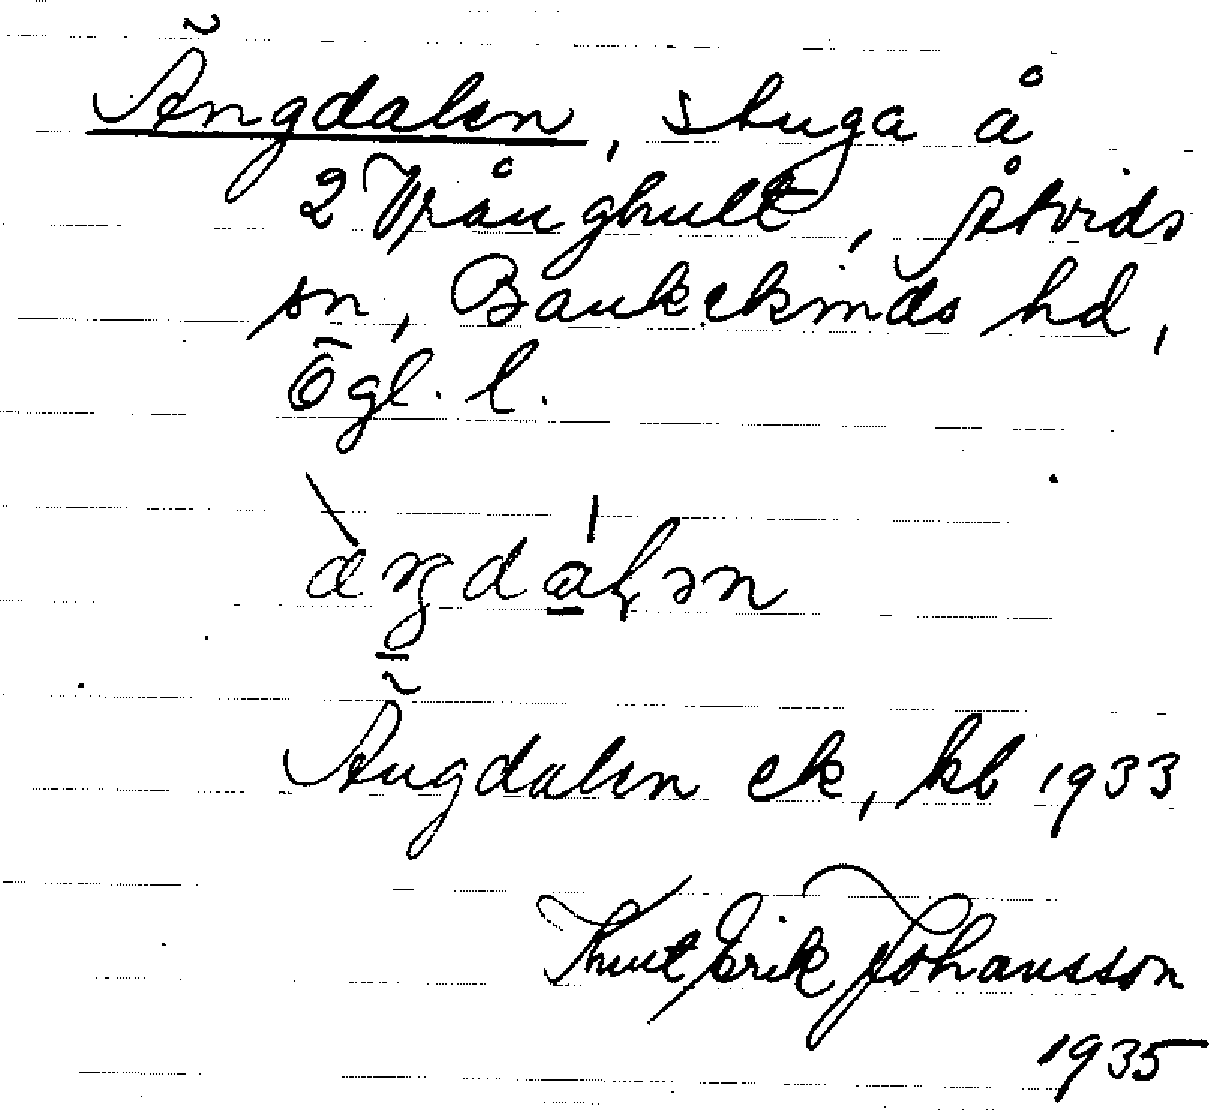 Ängdalen, stuga å
2 Vrånghult, Åtvids
sn, Bankekinds hd,
Ögl. l.
æŋdɑ́lən
Ängdalen ek, kb 1933
Knut Erik Johansson
1935